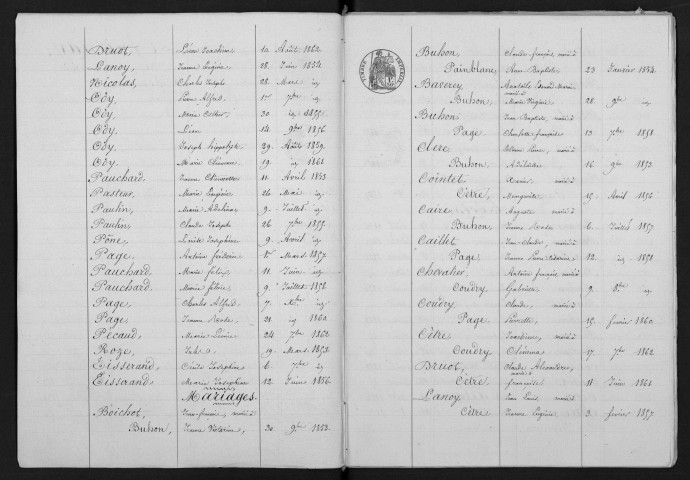 Bruot, Léon Joachim 10 Août 1862
Lanoy, Jeanne Eugénie 28 Juin 1854
Nicolas, Charles Joseph 28 Mars id
Ody, Pierre Alfred 1er 7bre id
Ody, Marie Esther 30 id 1855
Ody, Léon 14 9bre 1856
Ody, Joseph hippolyte 29 Août 1859
Ody, Marie 19 id 1861
Pauchard, Jeanne 11 Avril 1853
Pasteur, Marie Eugénie 26 Mai id
Paulin, Marie 9 Juillet id
Paulin, Claude Joseph 26 7bre 1855
Pône, Josephine 9 Avril id
Page, Antoine frédéric 1er Mars 1857
Pauchard, Marie félix 11 Juin id
Pauchard, Marie félicie 9 Juillet 1858
Page, Charles Alfred 7 id
Page, Jeanne 21 id 1860
Pécaud, Marie 24 7bre 1862
Roze, Jules 19 Mars 1853
Tisserand, Josephine 6 7bre id
Tisserand, Marie Josephine 12 Juin 1856
Mariages
Boichot, marié à
Buhon, Jeanne Victorine 30 9bre 1853
TIMBRE IMPERIAL
Buhon, Claude françois marié à
Painblanc, Jean Baptiste 23 Janvier 1854
Barrey, marié à
Buhon, Marie 28 9bre id
Buhon, Jean Baptiste marié à
Page, Charlotte françoise 13 7bre 1858
Clerc, Pierre marié à
Buhon, Adélaïde 16 9bre 1853
Cointet, Xavier marié à
Cêtre, Marguerite 15 Avril 1856
Caire, Auguste marié à
Buhon, Jeanne 6 Juillet 1857
Caillet, Jean Claude marié à
Page, Jeanne 12 id 1858
Chevalier, Antoine françois marié à
Coudry, 9 id
Coudry, Claude marié à
Page, Pierrette 15 février 1860
Cêtre, marié à
Coudry, 17 7bre 1862
Bruot, Claude Alexandre marié à
Cêtre, françoise 11 Juin 1861
Lanoy, Jean Louis marié à
Cêtre, Jeanne 3 février 1857